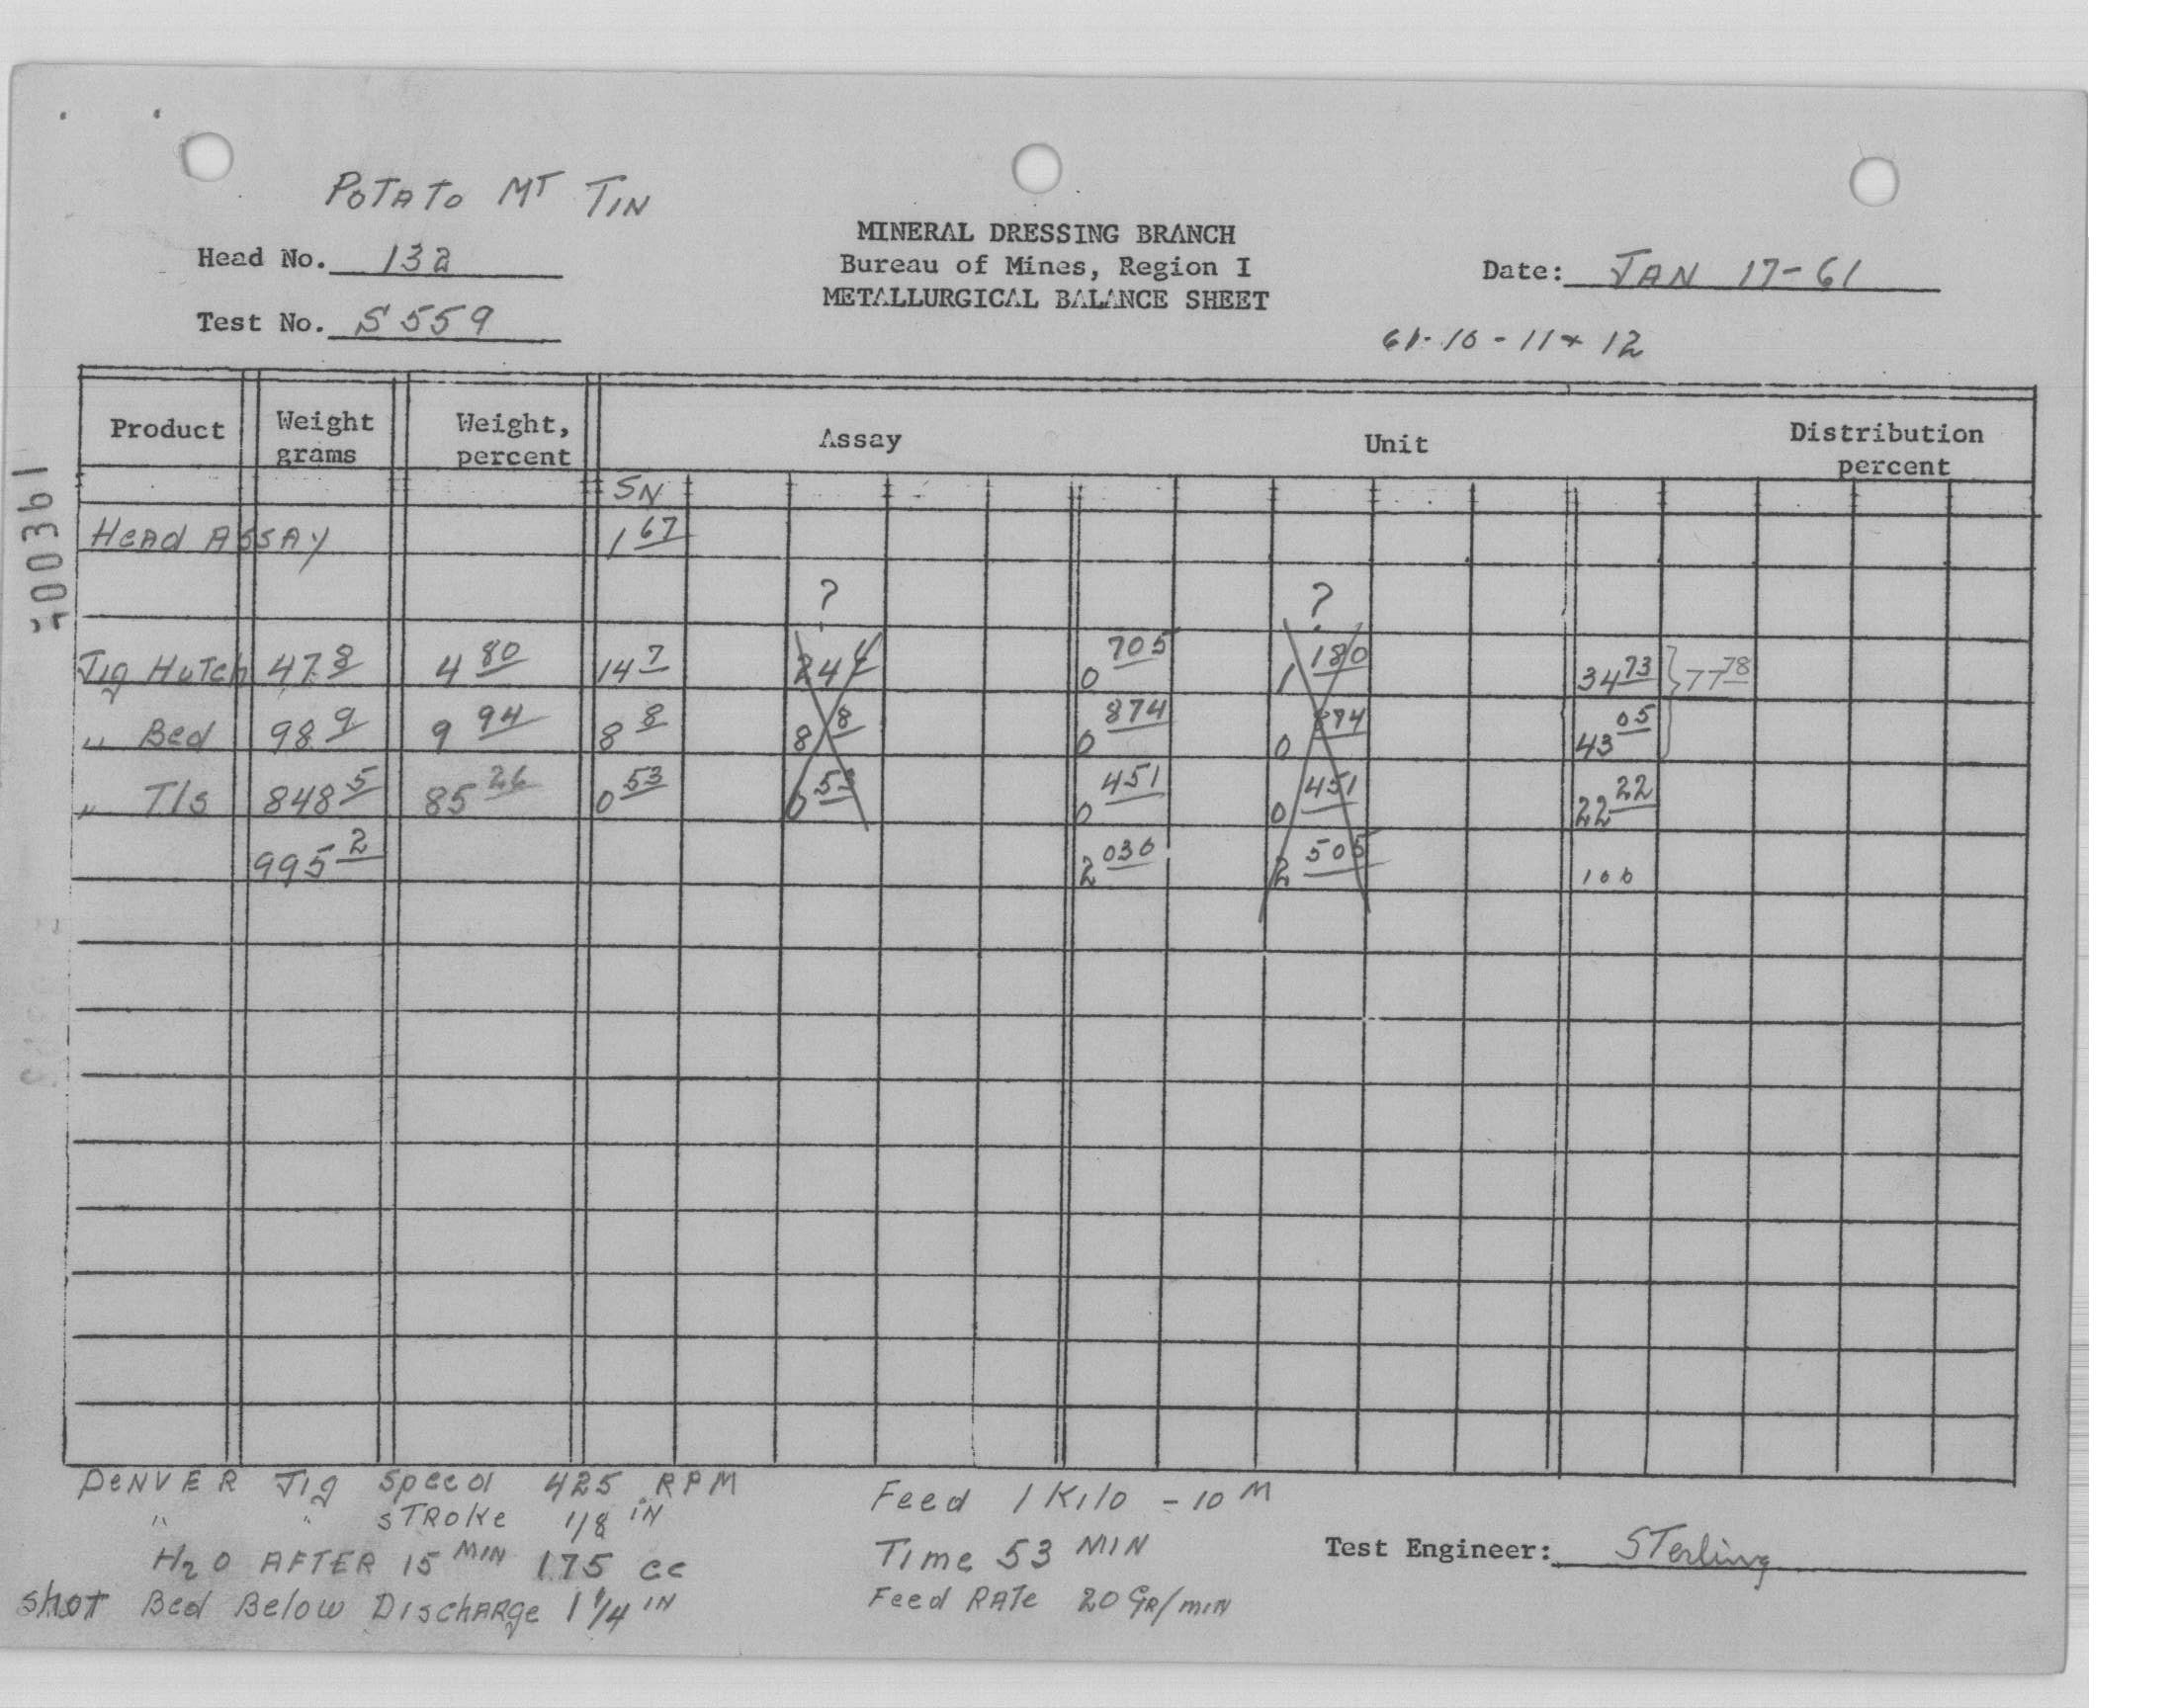 POTATO MT TIN
MINERAL DRESSING BRANCH
Head No. 132
Bureau of Mines, Region I
Date: JAN 17-61
METALLURGICAL BALANCE SHEET
Test No. S 559
61-10-11+12
Product Weight grams Weight, percent Assay Unit Distribution percent
SN
HeAD ASSAY 1 67
? ?
Jig HuTch 47 8 4 80 14 7 24 4 0 705 1 180 34 73 77 78
" Bed 98 9 9 94 8 8 8 8 0 874 0 874 43 05
" Tls 848 5 85 26 0 53 0 53 0 451 0 451 22 22
995 2 2 030 2 505 100
DENVER Jig Speed 425 RPM
" " STROKe 1/8 IN
H2O AFTER 15 MIN 175 cc
shot Bed Below DischARge 1 1/4 IN
Feed 1 Kilo - 10 M
Time 53 MIN
Feed RATe 20 GR/MIN
Test Engineer: STerling